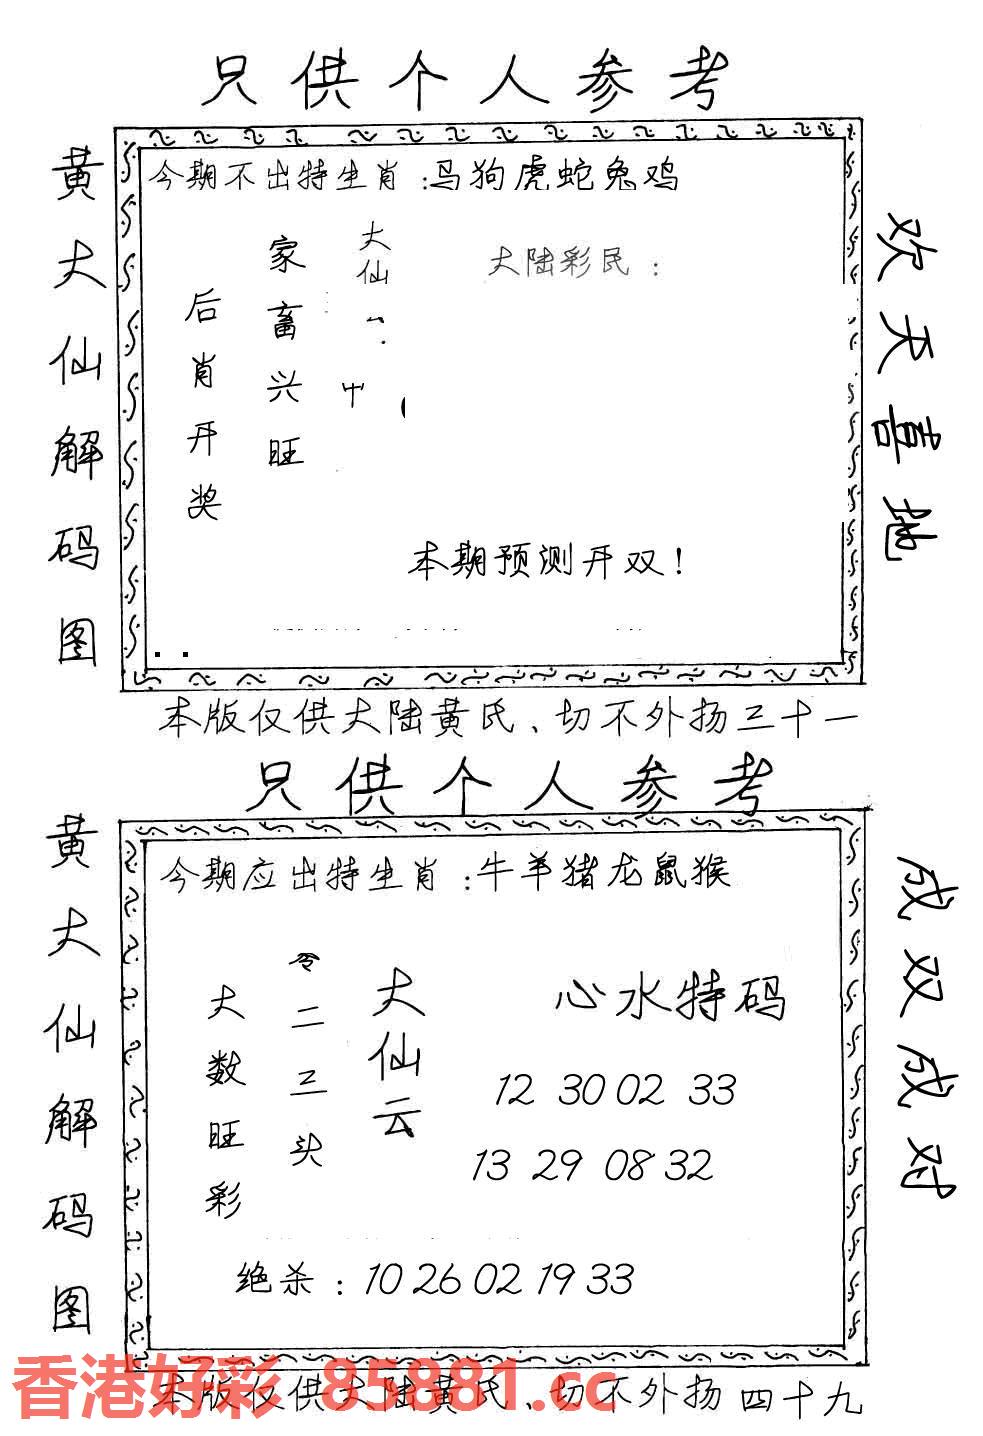 只供个人参考
黄大仙解码图
今期不出特生肖:马狗虎蛇兔鸡
大仙
家畜兴旺
后肖开奖
大陆彩民:
本期预测开双!
欢天喜地
本版仅供大陆黄氏、切不外扬三十一
只供个人参考
黄大仙解码图
今期应出特生肖:牛羊猪龙鼠猴
大仙云
零二三头
大数旺彩
心水特码
12 30 02 33
13 29 08 32
绝杀:10 26 02 19 33
成双成对
香港好彩 85881.cc
本版仅供大陆黄氏、切不外扬四十九